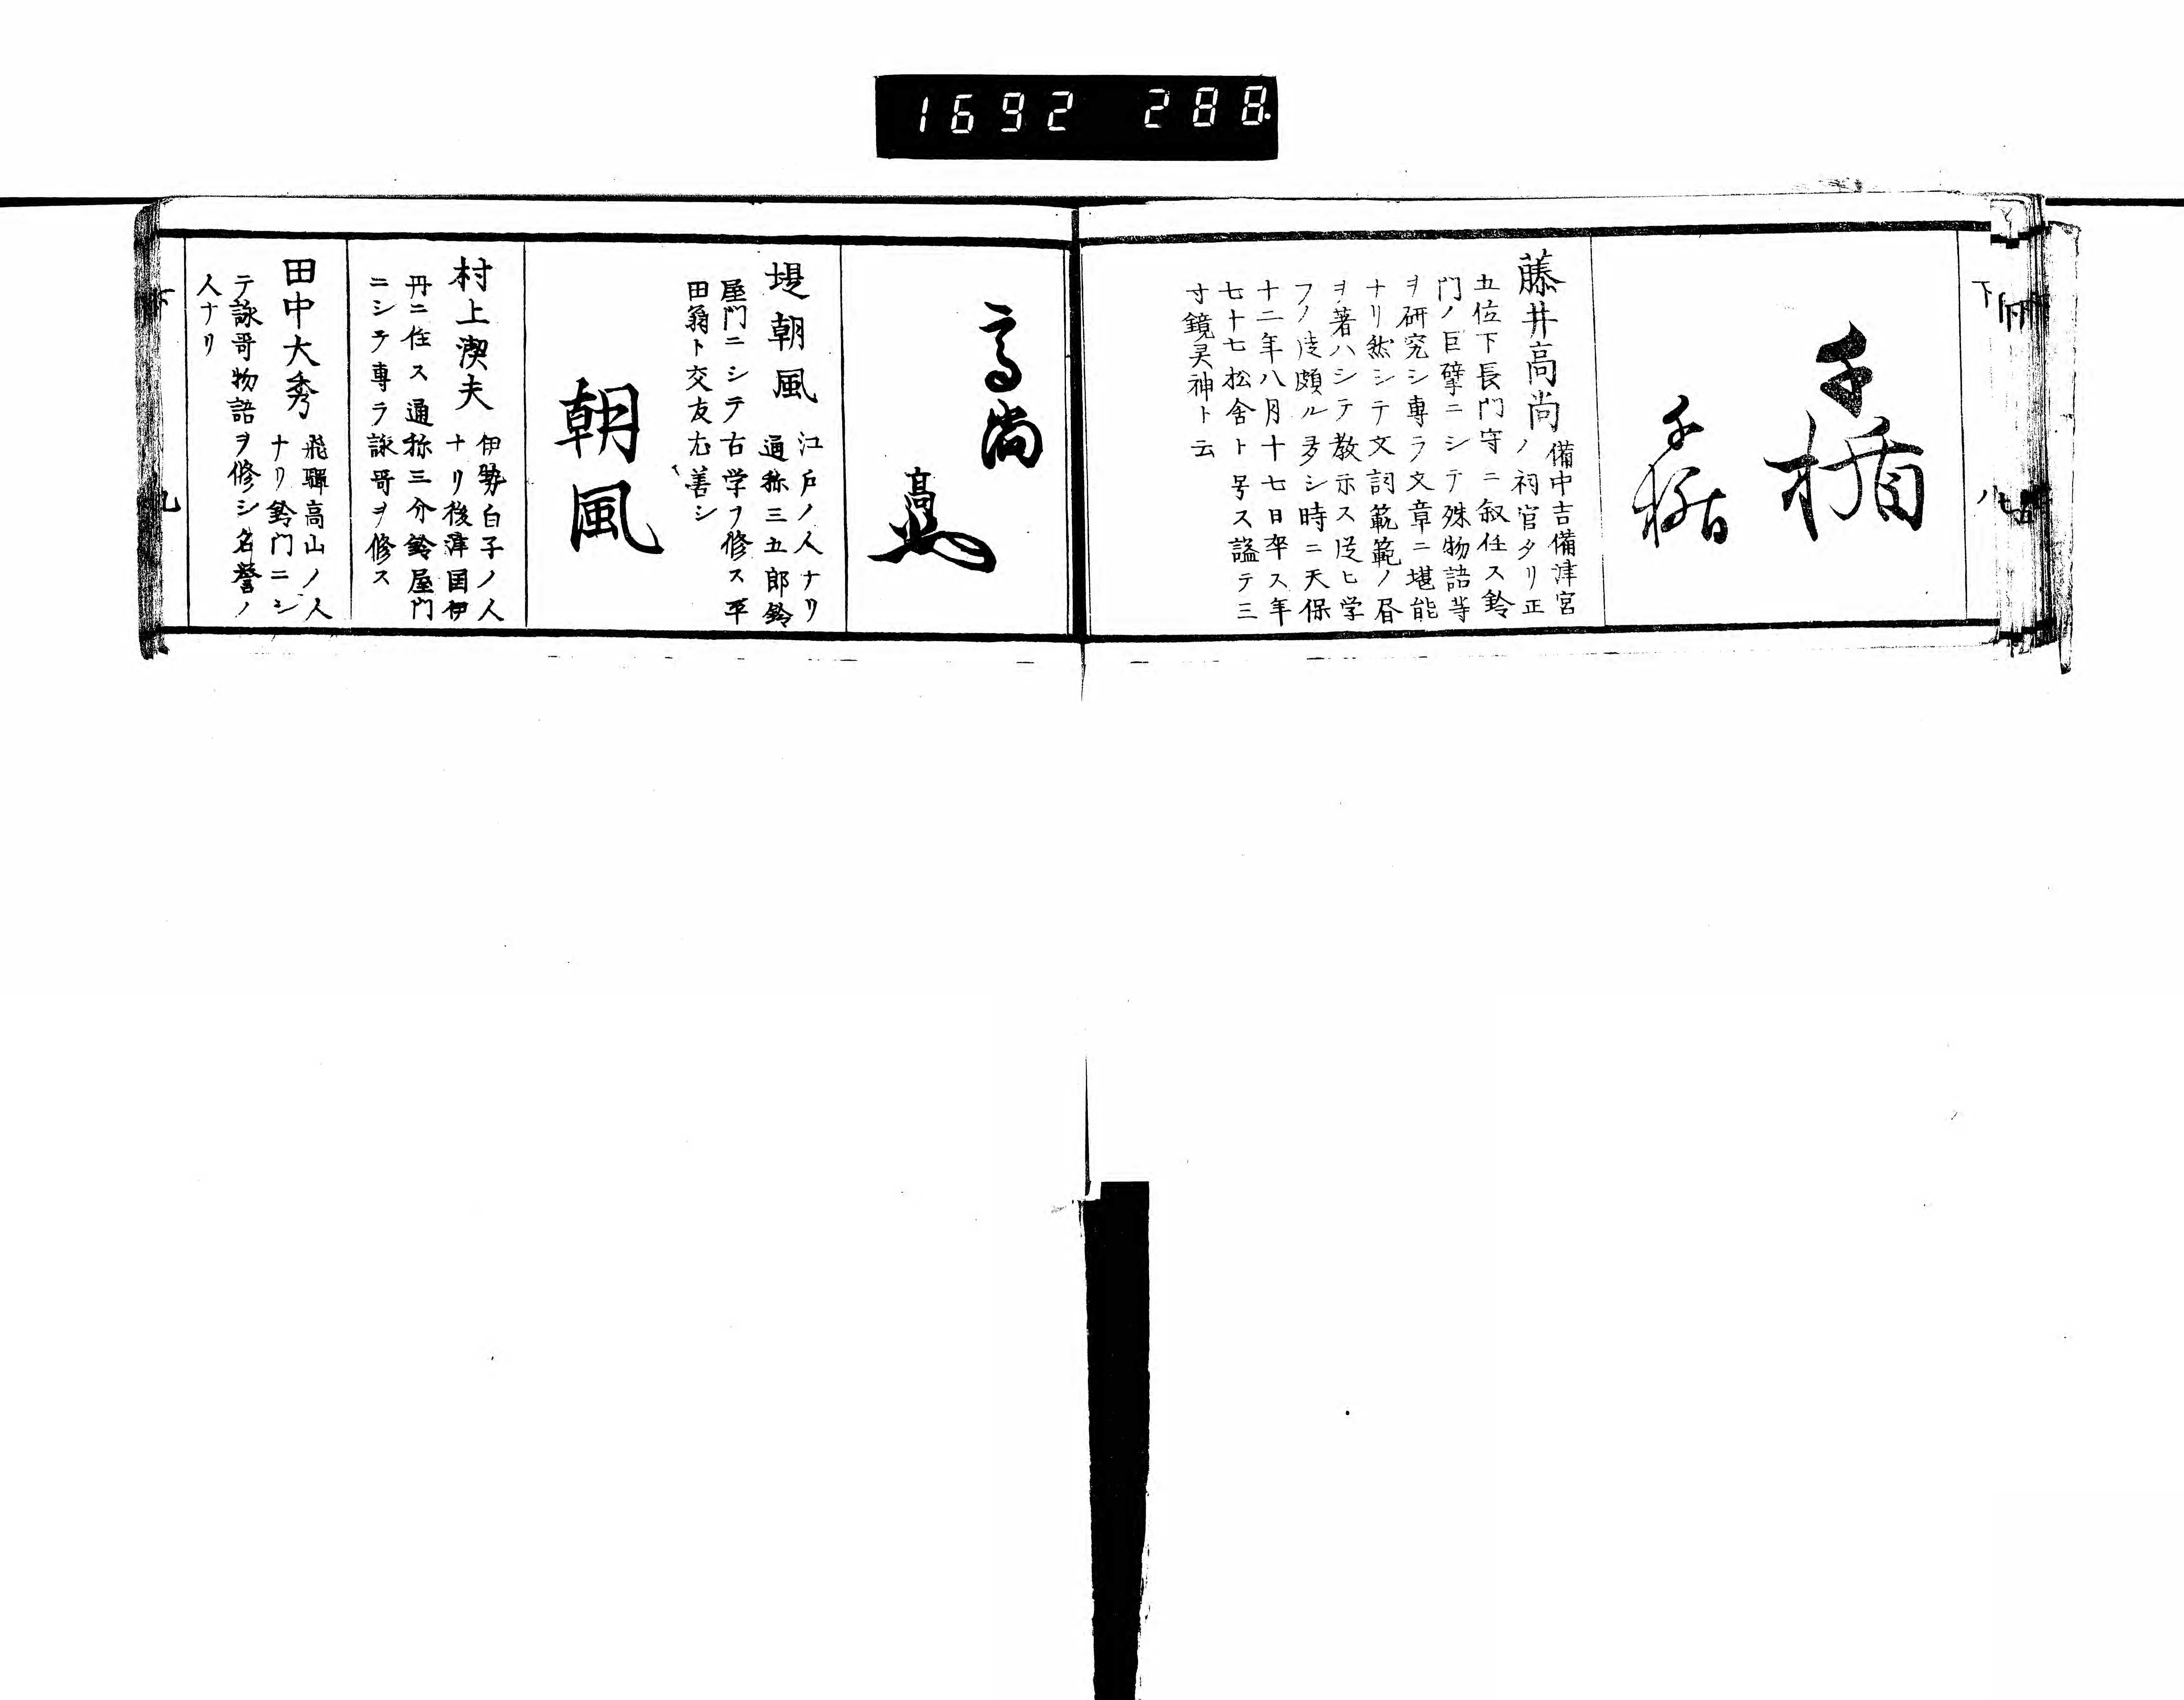 1692 288.
千楯
千楯
藤井高尚 備中吉備津宮
ノ祠官タリ正
五位下長門守ニ叙任ス鈴
門ノ巨擘ニシテ殊物語等
ヲ研究シ専ラ文章ニ堪能
ナリ然シテ文詞範範ノ昏
ヲ著ハシテ教示ス従ヒ学
フノ徒頗ル多シ時ニ天保
十二年八月十七日卒ス年
七十七松舎ト号ス謚テ三
寸鏡灵神ト云
高尚
高尚
堤朝風 江戸ノ人ナリ
通称三五郎鈴
屋門ニシテ古学フ修ス平
田翁ト交友尤善シ
朝風
村上潔夫 伊勢白子ノ人
ナリ後津国伊
丹ニ住ス通称三介鈴屋門
ニシテ専ラ詠哥ヲ修ス
田中大秀 飛驒高山ノ人
ナリ鈴門ニシ
テ詠哥物語ヲ修シ名誉ノ
人ナリ